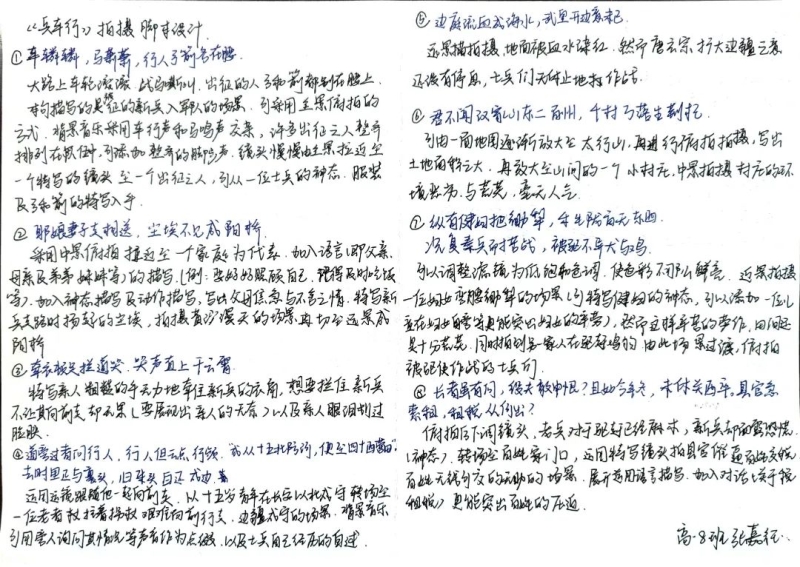 《兵车行》拍摄脚本设计
①车辚辚，马萧萧，行人弓箭各在腰。
大路上车轮滚滚，战马嘶叫，出征的人弓和箭都别在腰上。
本句描写的是出征的新兵入军队的场景。可采用全景俯拍的
方式，背景音乐采用车行声和马鸣声交杂，许多出征之人整齐
排列在队伍中，可添加整齐的脚步声。镜头慢慢由全景拉近至
一个特写的镜头至一个出征之人，可从一位士兵的神态、服装
及弓和箭的特写入手。
②耶娘妻子走相送，尘埃不见咸阳桥
采用中景俯拍拉近至一个家庭为代表，加入语言（即父亲、
母亲及弟弟妹妹等）的描写。（例：要好好照顾自己，记得及时吃饭
等）。加入神态描写及动作描写，写出父母焦急与不舍之情。特写新
兵走路时扬起的尘埃，拍摄黄沙漫天的场景再切至远景咸
阳桥
③牵衣顿足拦道哭，哭声直上干云霄
特写亲人粗糙的手无力地牵住新兵的衣角，想要拦住新兵
不让其向前走却无果（要展现出亲人的无奈）以及亲人眼泪划过
脸颊。
④道旁过者问行人，行人但云点行频。"或从十五北防河，便至四十西营田"
去时里正与裹头，归来头白还戍边
运用运镜跟随他一起向前走，以十五岁青年在长安以北戍守转场至
一位老者杖拄着拐杖艰难向前行走，边疆戍守的场景。背景音乐
引用旁人询问其情况等声音作为点缀，以及士兵自己经历的自述。
⑤边庭流血成海水，武皇开边意未已
远景描拍摄，地面被血水染红，然而唐玄宗扩大边疆之意
还没有停息，士兵们无休止地打作战。
⑥君不闻汉家山东二百州，千村万落生荆杞。
可由一面地图逐渐放大至太行山，再进行俯拍拍摄，写出
土地面积之大，再放大至山间的一个小村庄，中景拍摄村庄的环
境张力与荒芜，毫无人气。
⑦纵有健妇把锄犁，禾生陇亩无东西。
况复秦兵耐苦战，被驱不异犬与鸡。
可以调整滤镜为低饱和色调，使色彩不那么鲜亮。远景拍摄
一位妇女弯腰锄犁的场景（可特写健妇的神态，可以添加一位儿
童在妇女背部更能突出妇女的辛劳），然而这样辛苦的劳作，田间还
是十分荒芜。同时拍到家人在驱赶鸡狗由此场景过渡，俯拍
被驱使作战的士兵们。
⑧长者虽有问，役夫敢申恨？且如今年冬，未休关西卒。县官急
索租，租税从何出？
俯拍后下调镜头，老兵对于驱赶已经麻木，新兵却面露恐惧
（神态）。转场至百姓家门口，运用特写镜头拍县官催逼百姓交税，
百姓无钱可交的无助的场景。展开运用语言描写，加入对话（关于税
租税）更能突出百姓的压迫。
高一8班 张嘉